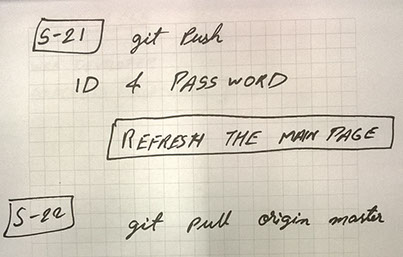 S-21 git Push
ID & PASSWORD
REFRESH THE MAIN PAGE
S-22 git pull origin master